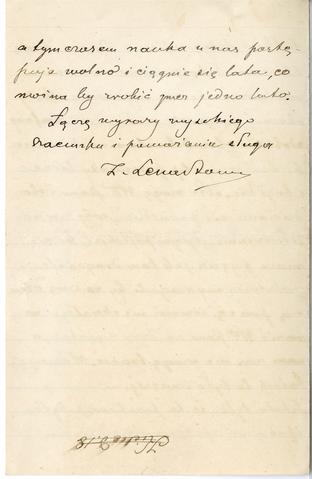 a tymczasem nauka u nas postę-
puje wolno i ciągnie się lata, co
winna by zrobić przez jedno lato.
Łączę wyrazy wysokiego
szacunku i poważania sługa